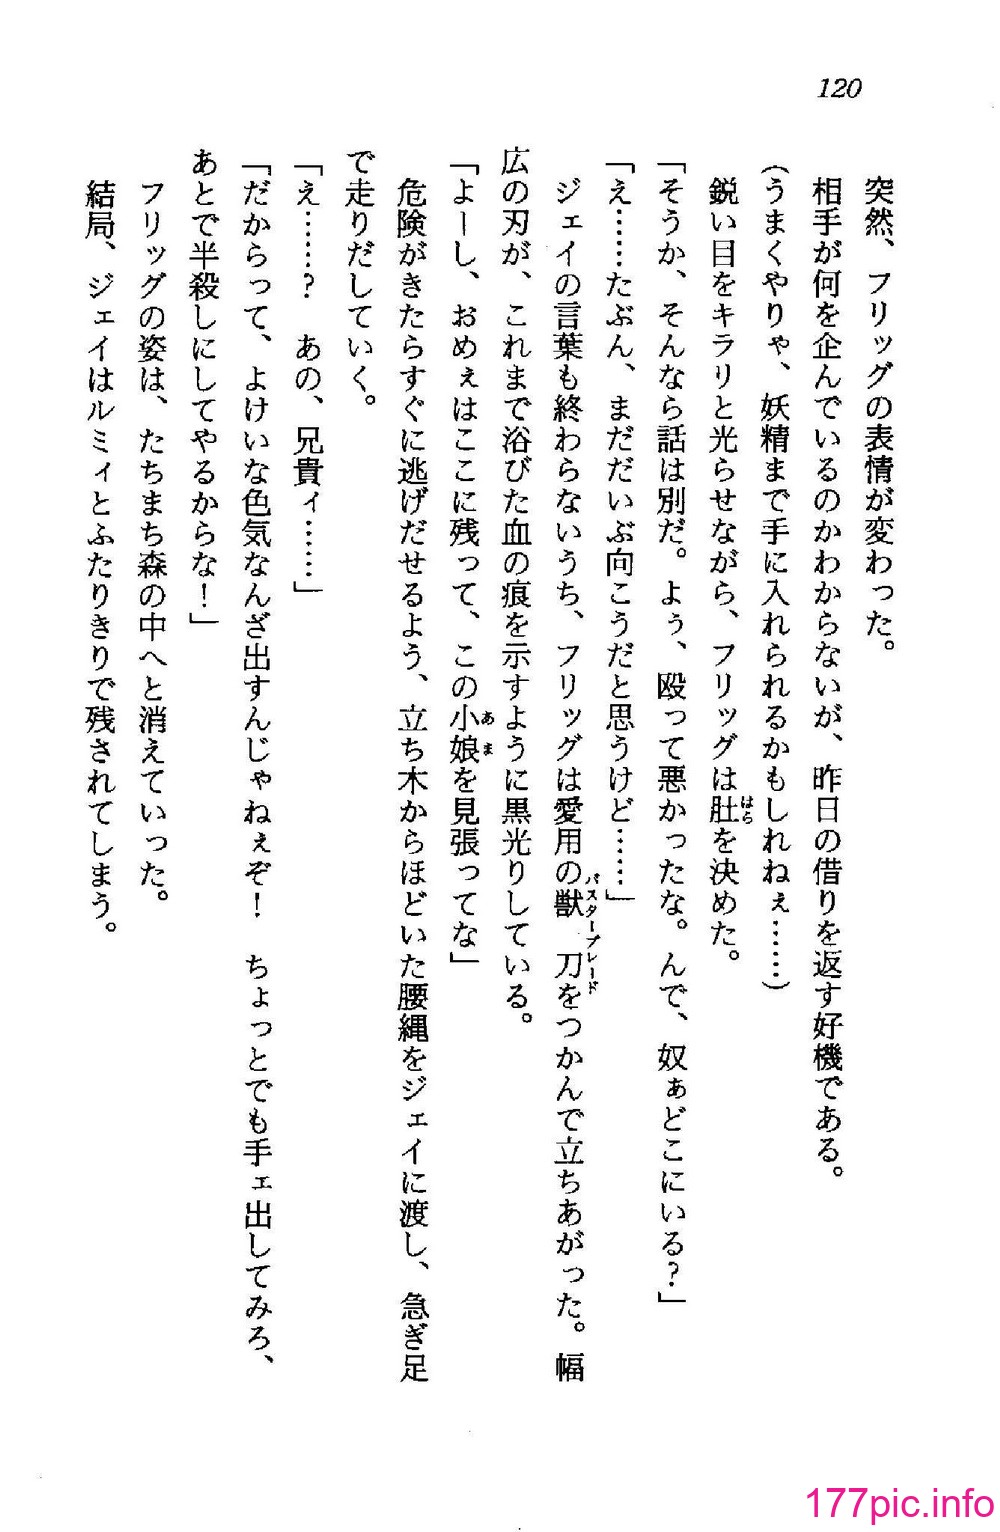 120
突然、フリッグの表情が変わった。
相手が何を企んでいるのかわからないが、昨日の借りを返す好機である。
(うまくやりゃ、妖精まで手に入れられるかもしれねぇ……)
鋭い目をキラリと光らせながら、フリッグは肚はらを決めた。
「そうか、そんなら話は別だ。よぅ、殴って悪かったな。んで、奴ぁどこにいる?」
「え……たぶん、まだだいぶ向こうだと思うけど……」
ジェイの言葉も終わらないうち、フリッグは愛用の獣刀バスターブレードをつかんで立ちあがった。幅
広の刃が、これまで浴びた血の痕を示すように黒光りしている。
「よーし、おめぇはここに残って、この小娘あまを見張ってな」
危険がきたらすぐに逃げだせるよう、立ち木からほどいた腰縄をジェイに渡し、急ぎ足
で走りだしていく。
「え……? あの、兄貴ィ……」
「だからって、よけいな色気なんざ出すんじゃねぇぞ! ちょっとでも手ェ出してみろ、
あとで半殺しにしてやるからな!」
フリッグの姿は、たちまち森の中へと消えていった。
結局、ジェイはルミィとふたりきりで残されてしまう。
177pic.info